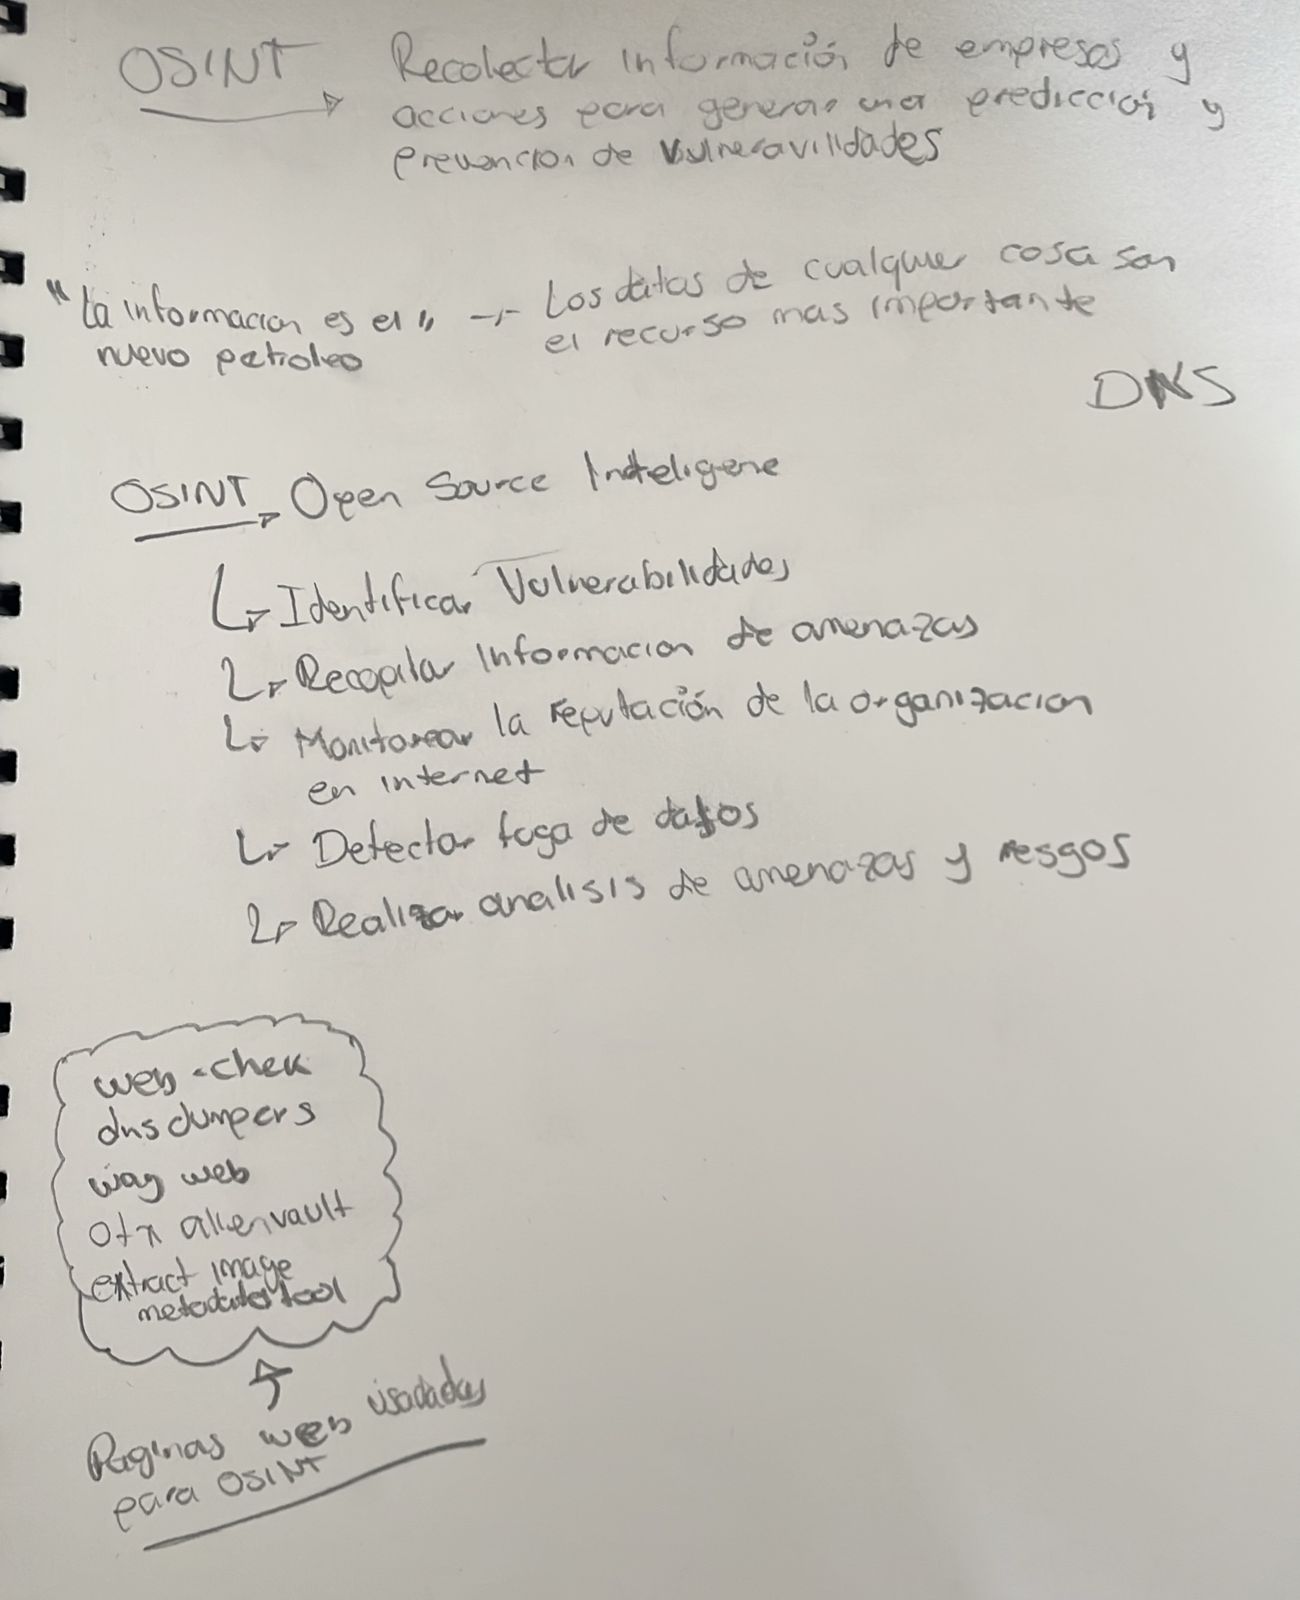 OSINT → Recolectar información de empresas y
acciones para generar una predicción y
prevencion de Vulneravilidades
"La informacion es el" → Los datos de cualquier cosa son
nuevo petroleo
el recurso mas importante
DNS
OSINT → Open Source Inteligene
↳ Identificar Vulnerabilidades
↳ Recopilar informacion de amenazas
↳ Monitorear la reputación de la organizacion
en internet
↳ Detectar fuga de datos
↳ Realizar analisis de amenazas y resgos
web-chek
dnsdumpers
way web
otx alienvault
extract image
metadata tool
Paginas web usadadas
para OSINT